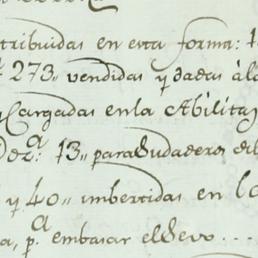 tribuidas en esta forma:
273,, vendidas y dadas à l
Cargadas en la Abilita
13,, para ludadero del
y 40,, imbertidas en lo
a, p.ª embasar el sevo....